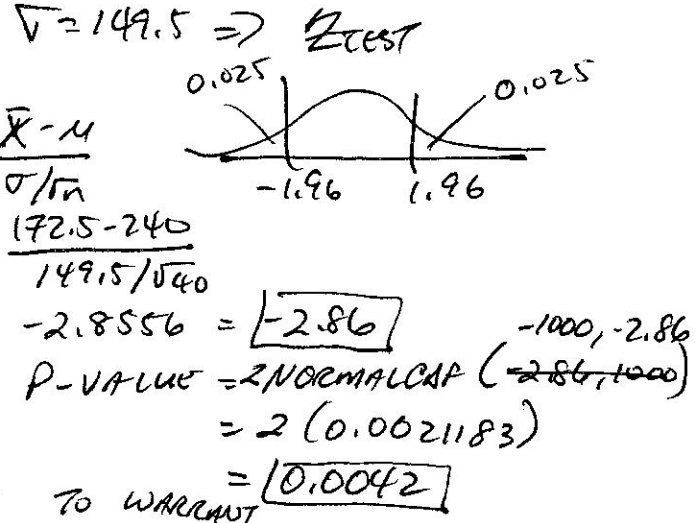 σ = 149.5 => Z TEST
0.025 0.025
-1.96 1.96
x̄ - μ
σ/√n
172.5-240
149.5/√40
-2.8556 = -2.86
-1000, -2.86
P-VALUE = 2NORMALCDF (-2.86, 1000)
= 2 (0.0021183)
= 0.0042
TO WARRANT